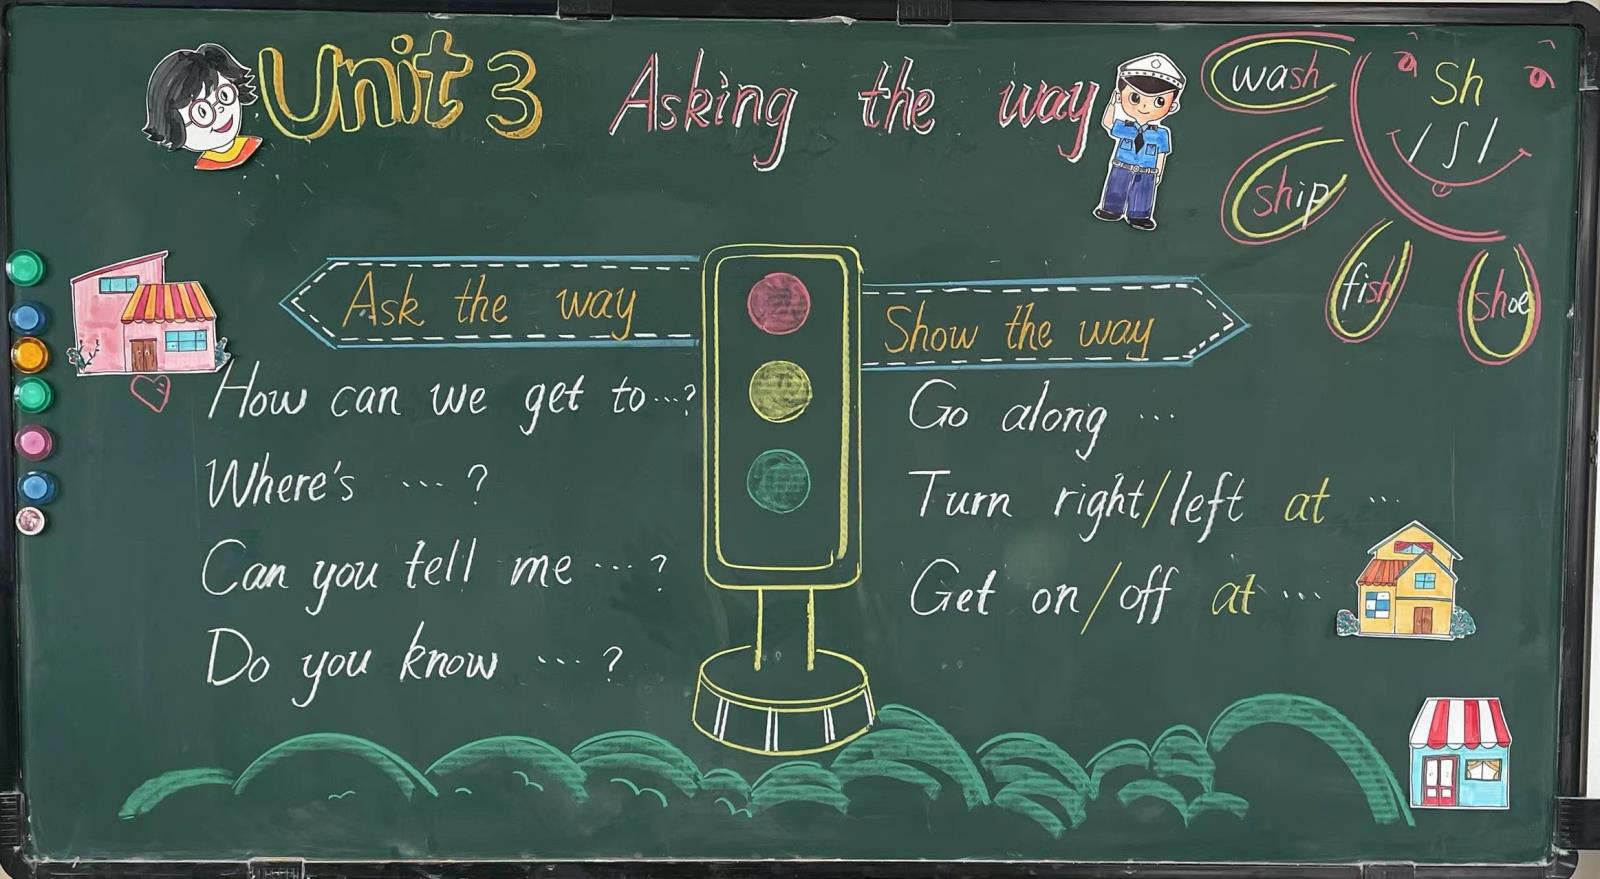 Unit 3 Asking the way
wash
Sh
/ʃ/
ship
fish
shoe
Ask the way
How can we get to ...?
Where's ...?
Can you tell me ...?
Do you know ...?
Show the way
Go along ...
Turn right/left at ...
Get on/off at ...